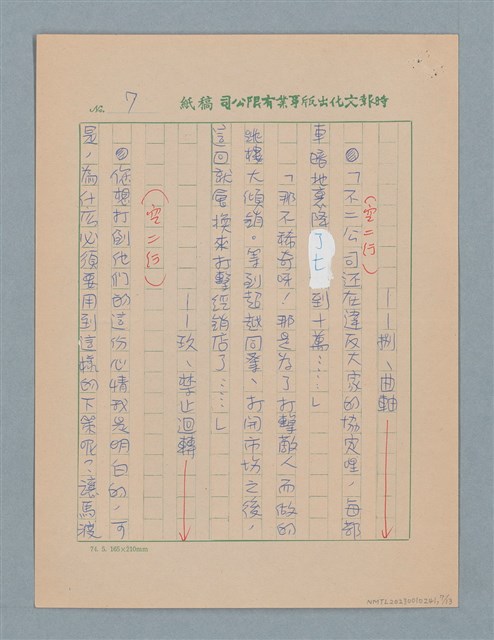 時報文化出版事業有限公司 稿紙
No. 7
——捌、曲軸
(空二行)
◎「不二公司还在違反大家的協定哩，每部
車暗地裏降了七到十萬……」
「那不稀奇呀！那是为了打擊敵人而做的
跳樓大傾銷。等到超越同業、打開市场之後，
這回就會換來打擊經銷店了……」
——玖、禁止迴轉
(空二行)
◎您想打倒他們的這份心情我是明白的，可
是，為什広必須要用到這樣的下策呢？讓馬渡
74. 5. 165×210mm